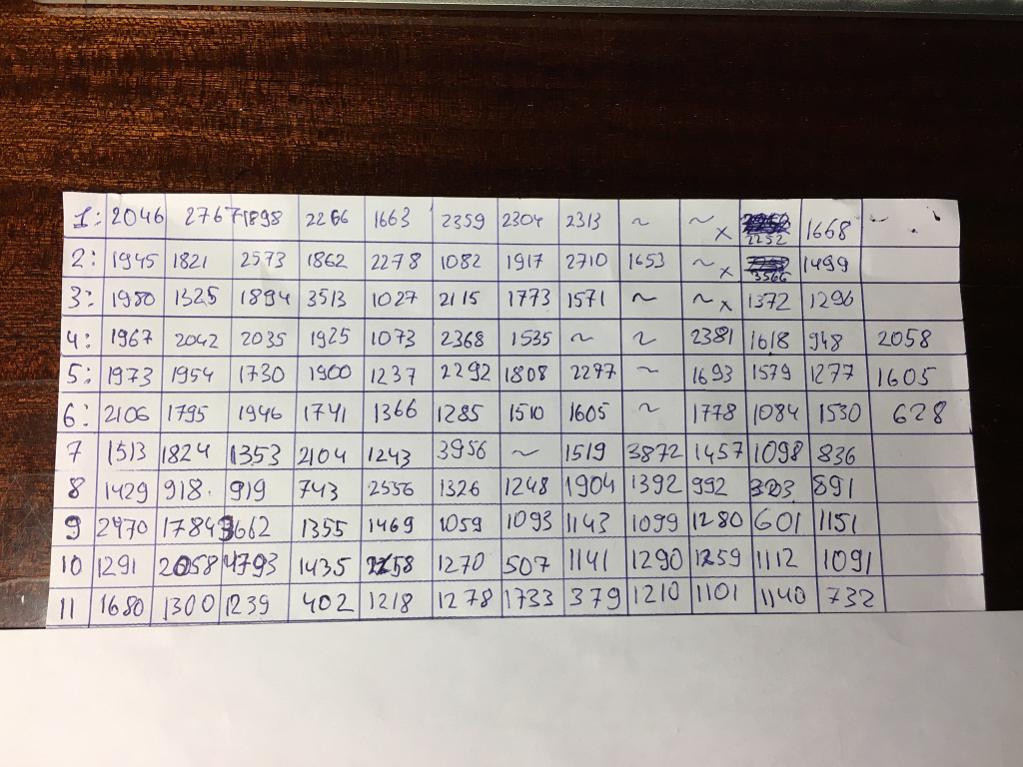 1: 2046 2767 1898 2266 1663 2359 2304 2313 ~ ~ x 2252 1668
2: 1945 1821 2573 1862 2278 1082 1917 2710 1653 ~ x 3566 1499
3: 1980 1325 1894 3513 1027 2115 1773 1571 ~ ~ x 1372 1296
4: 1967 2042 2035 1925 1073 2368 1535 ~ ~ 2381 1618 948 2058
5: 1973 1954 1730 1900 1237 2292 1808 2277 ~ 1693 1579 1277 1605
6: 2106 1795 1946 1741 1366 1285 1510 1605 ~ 1778 1084 1530 628
7 1513 1824 1353 2104 1243 3956 ~ 1519 3872 1457 1098 836
8 1429 918 919 743 2556 1326 1248 1904 1392 992 891
9 2470 1784 3662 1355 1469 1059 1093 1143 1099 1280 601 1151
10 1291 2058 4793 1435 1270 507 1141 1290 1259 1112 1091
11 1680 1300 1239 402 1218 1278 1733 379 1210 1101 1140 732